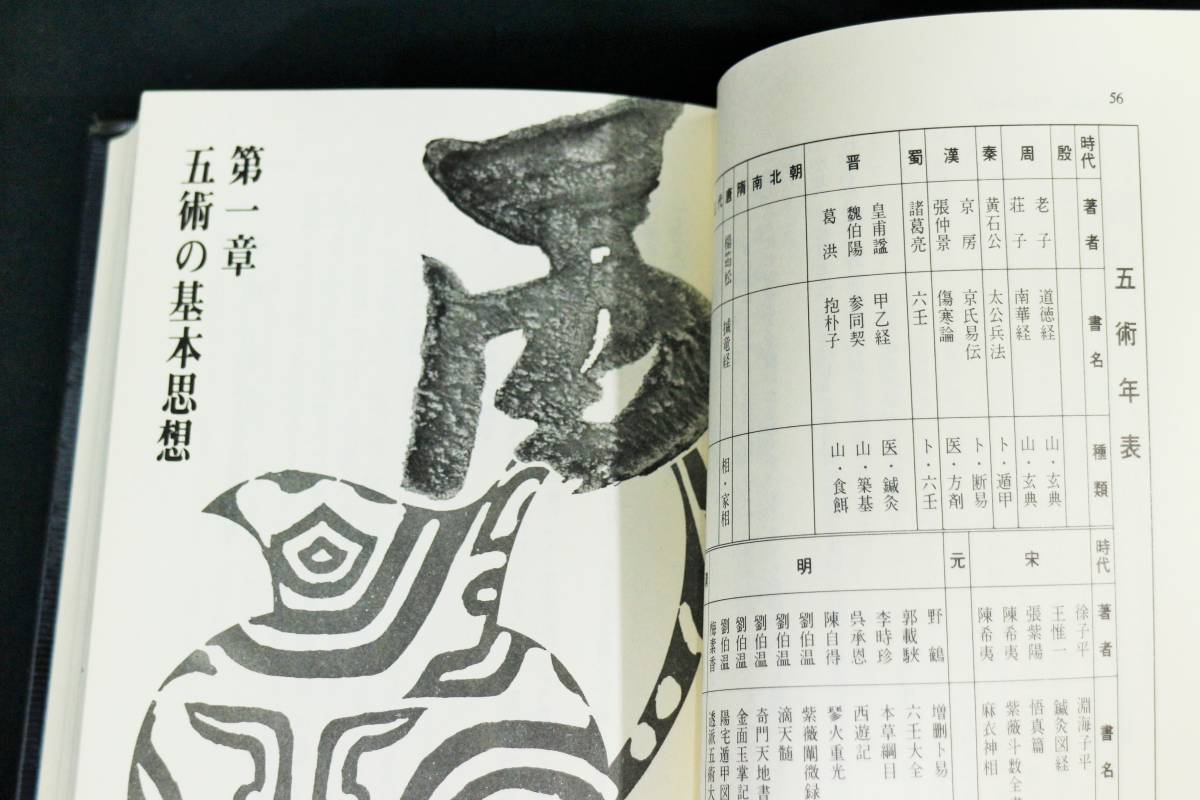 第一章
五術の基本思想
56
五術年表
時代
著者
書名
種類
殷
周
老子
道徳経
山・玄典
荘子
南華経
山・玄典
秦
黄石公
太公兵法
卜・遁甲
漢
京房
京氏易伝
卜・断易
張仲景
傷寒論
医・方剤
蜀
諸葛亮
六壬
卜・六壬
晋
皇甫謐
甲乙経
医・鍼灸
魏伯陽
参同契
山・築基
葛洪
抱朴子
山・食餌
南北朝
隋
唐
相・家相
時代
著者
書名
宋
徐子平
淵海子平
王惟一
鍼灸図経
張紫陽
悟真篇
陳希夷
紫薇斗数全
陳希夷
麻衣神相
元
明
野鶴
増删卜易
郭載騋
六壬大全
李時珍
本草綱目
呉承恩
西遊記
陳自得
火重光
劉伯温
紫薇闡微録
劉伯温
滴天髄
劉伯温
奇門天地書
劉伯温
金面玉掌記
劉伯温
陽宅遁甲図
梅素香
透派五術大